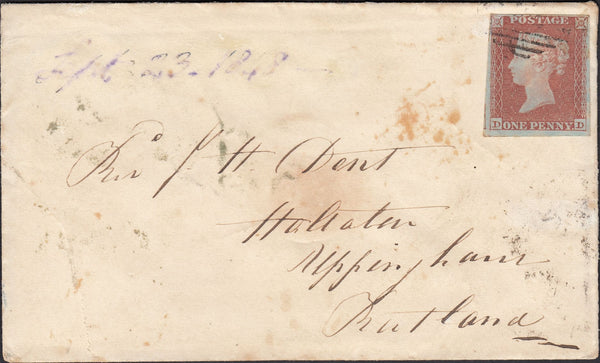 POSTAGE
D ONE PENNY D
Sept 23. 1848
Revd J H Dent
Hallaton
Uppingham
Rutland